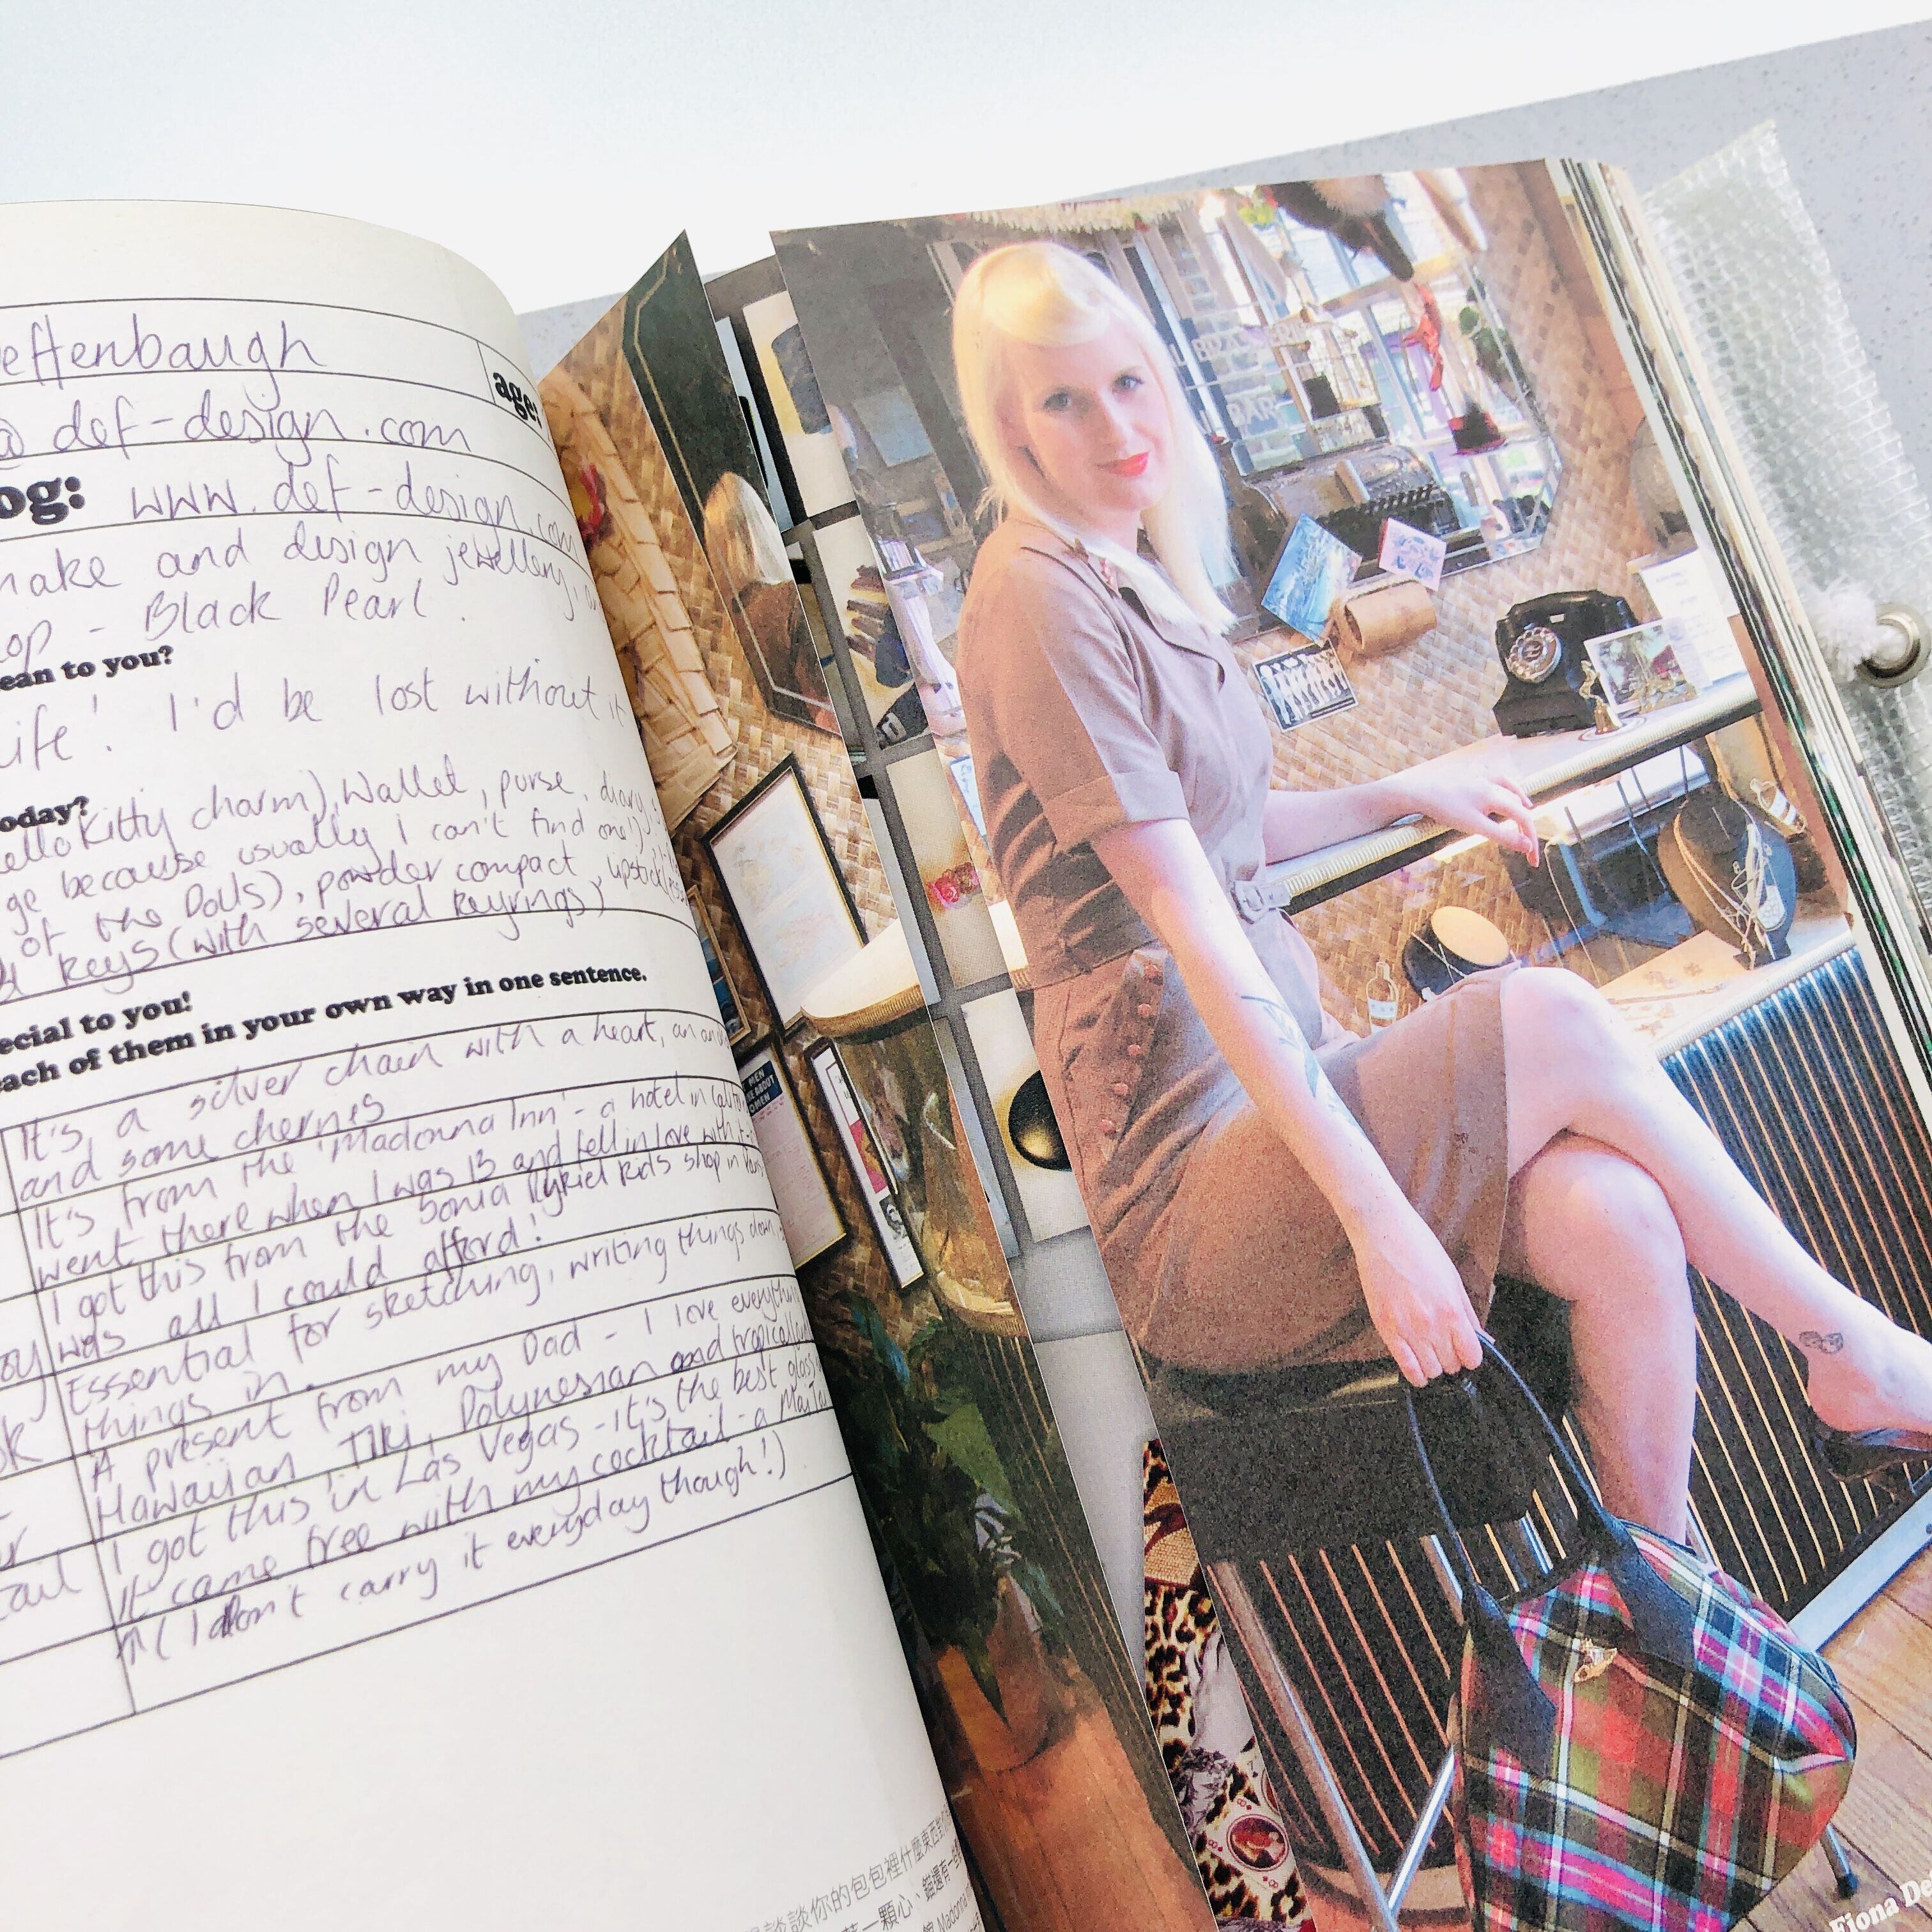 effenbaugh
age:
@ def-design.com
og: www.def-design.com
make and design jewellery,
op - Black Pearl.
ean to you?
life! I'd be lost without it
oday?
ello Kitty charm), Wallet, purse, diary,
ge because usually I can't find one!),
of the Dolls), powder compact, lipstick
keys (with several keyrings)
ecial to you!
each of them in your own way in one sentence.
It's a silver chain with a heart, an
and some cherries
It's from the 'Madonna Inn' - a hotel in
went there when I was 13 and fell in love with it
I got this from the Sonia Rykiel kids shop in
was all I could afford!
Essential for sketching, writing things down,
things in.
A present from my Dad - I love everything
Hawaiian, Tiki, Polynesian and tropical
I got this in Las Vegas - it's the best
it came free with my cocktail - a Mai Tai
↑ (I don't carry it everyday though!)
談談你的包包裡什麼東西對你
一顆心、貓還有一些
Madonna
MEN
ABOUT
OMEN
Fiona De